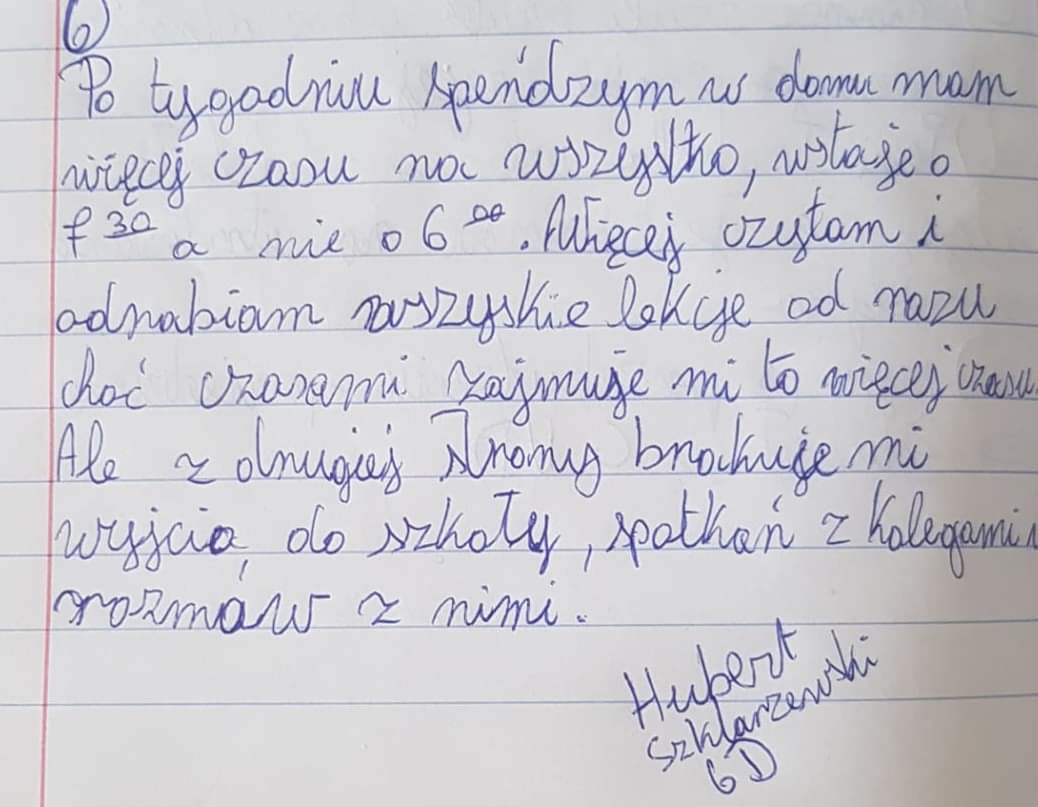 6
Po tygodniu spendzym w domu mam
więcej czasu na wszystko, wstaje o
7 30 a nie o 6 00. Więcej czytam i
odrabiam wszyskie lekcje od razu
choć czasami zajmuje mi to więcej czasu.
Ale z drugiej strony brakuje mi
wyjcia do szkoły, spotkań z kolegami i
rozmów z nimi.
Hubert
Szklarzewski
6D